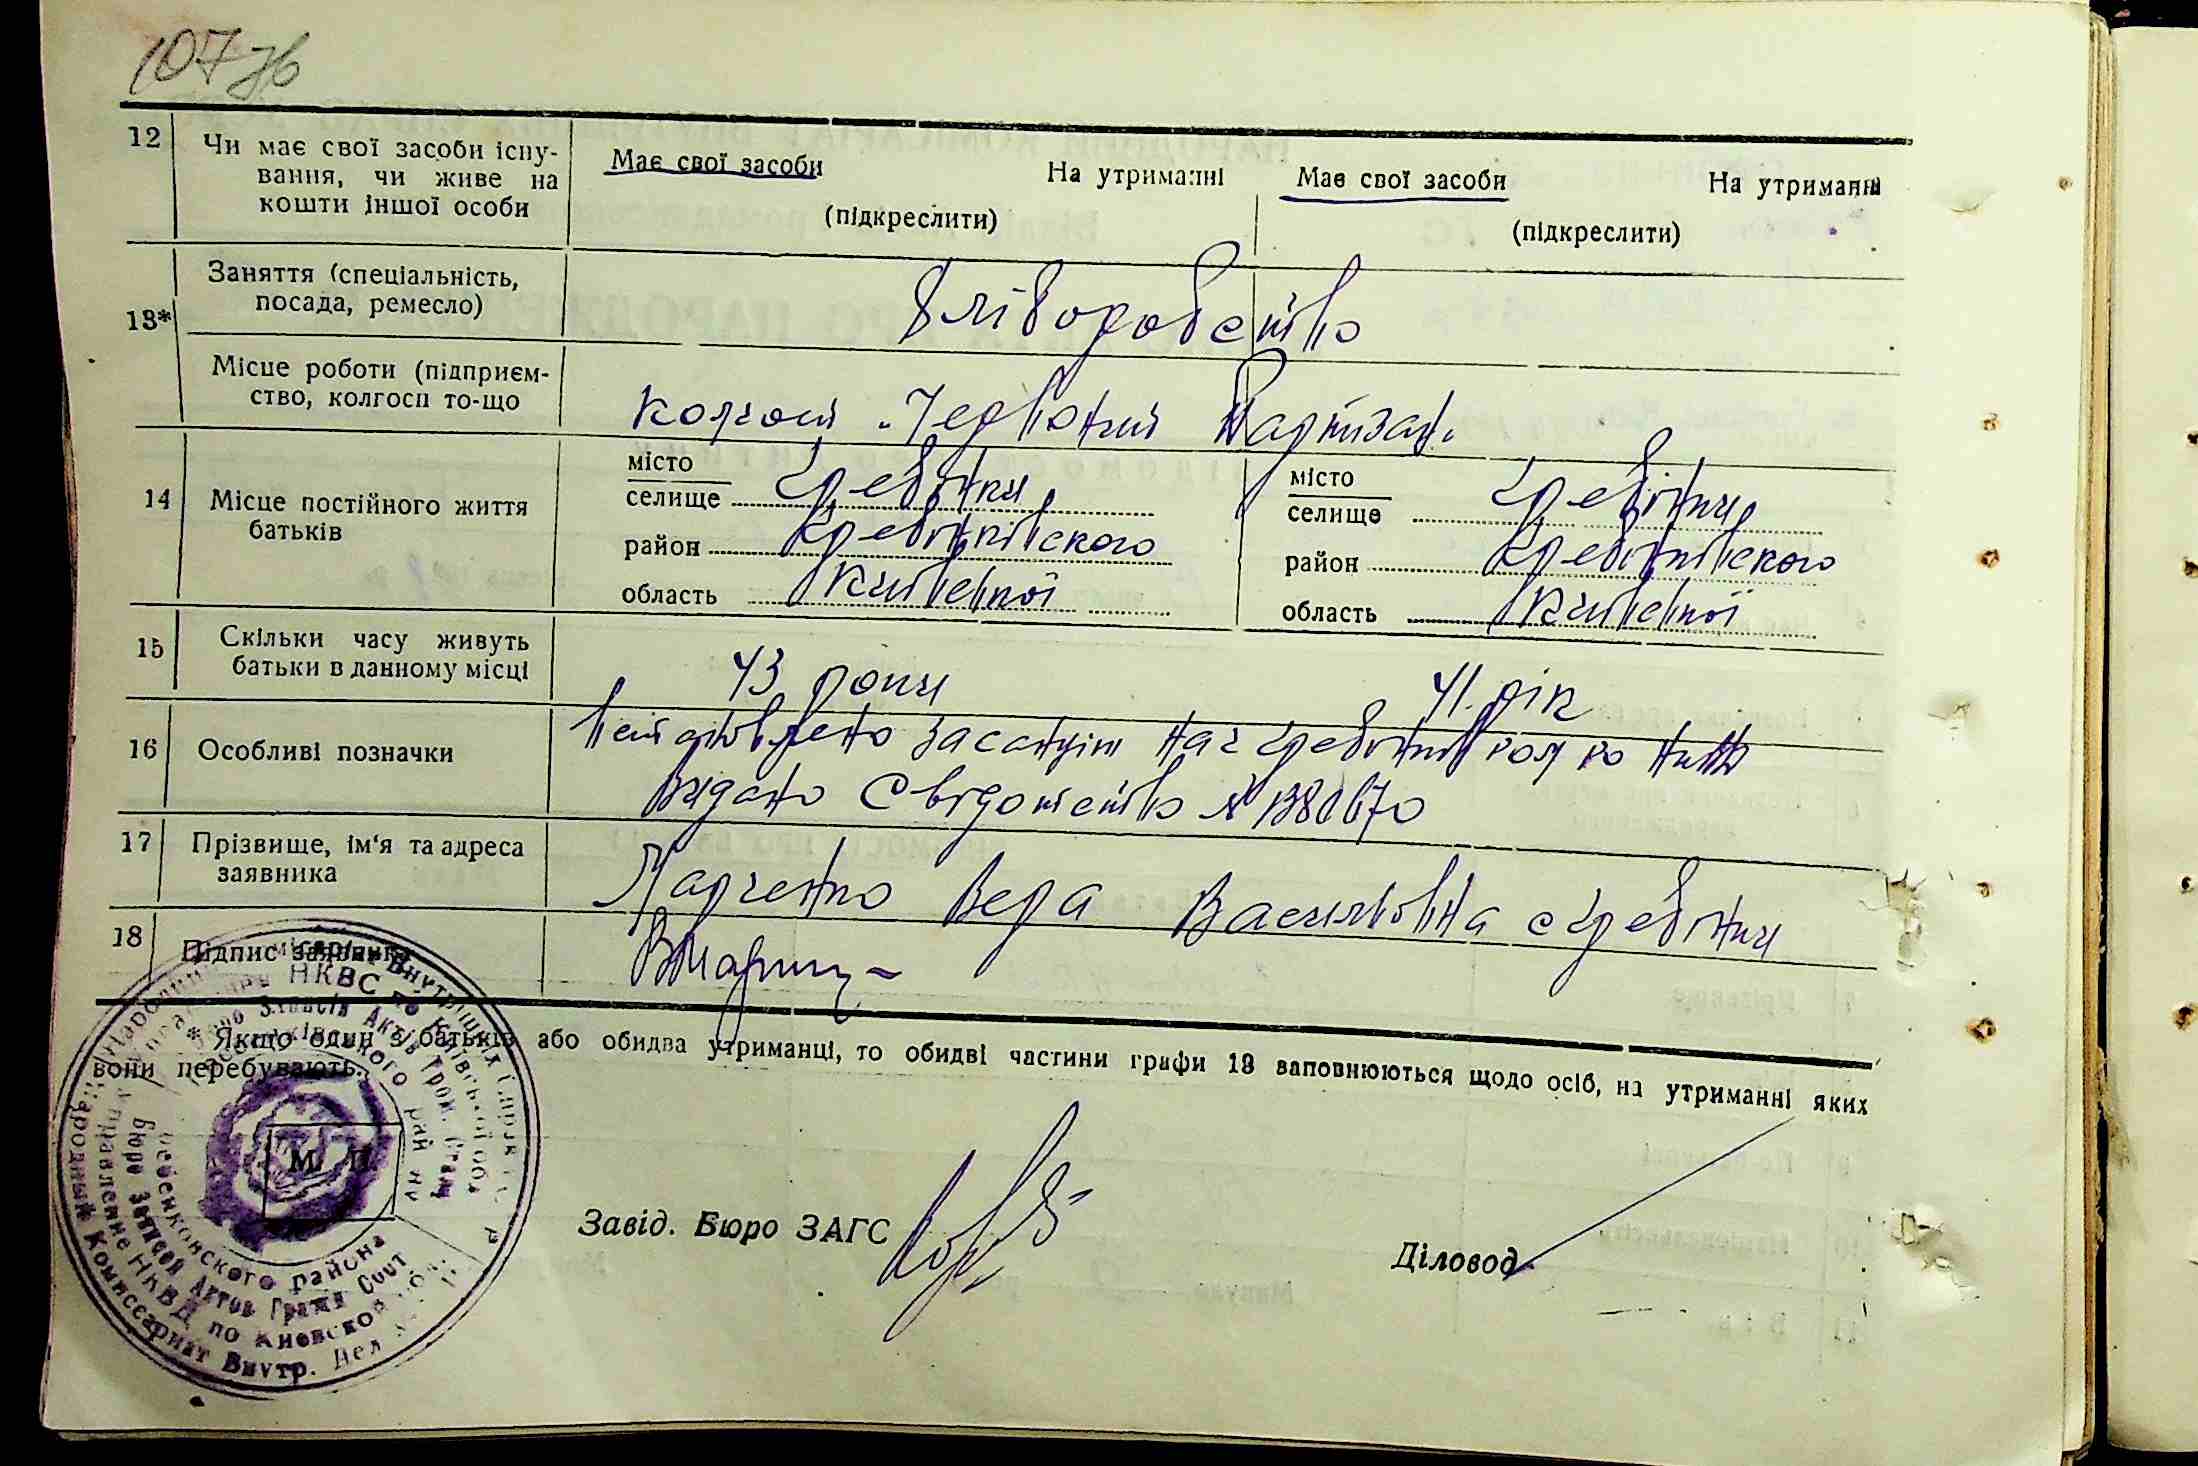 107 зв
12 Чи має свої засоби існу-
вання, чи живе на
кошти іншої особи
Має свої засоби На утриманні
(підкреслити)
Має свої засоби На утриманні
(підкреслити)
13* Заняття (спеціальність,
посада, ремесло)
Хліборобство
Місце роботи (підприєм-
ство, колгосп то-що
колгосп „Червоний Партизан"
14 Місце постійного життя
батьків
місто
селище Гребінки
район Гребінківского
область Київської
місто
селище Гребінки
район Гребінківского
область Київської
15 Скільки часу живуть
батьки в данному місці
43 роки 41 рік
16 Особливі позначки
Видано Свідотство №
17 Прізвище, ім'я та адреса
заявника
Марченко Вера Василівна с Гребінки
18 Підпис заявника
* Якщо один з батьків або обидва утриманці, то обидві частини графи 13 заповнюються щодо осіб, на утриманні яких
вони перебувають.
М. П.
Завід. Бюро ЗАГС
Діловод
Народный Комиссариат Внутр. Дел
Управление НКВД по Киевской обл.
Бюро Записей Актов Гражд Сост
Гребенковского района